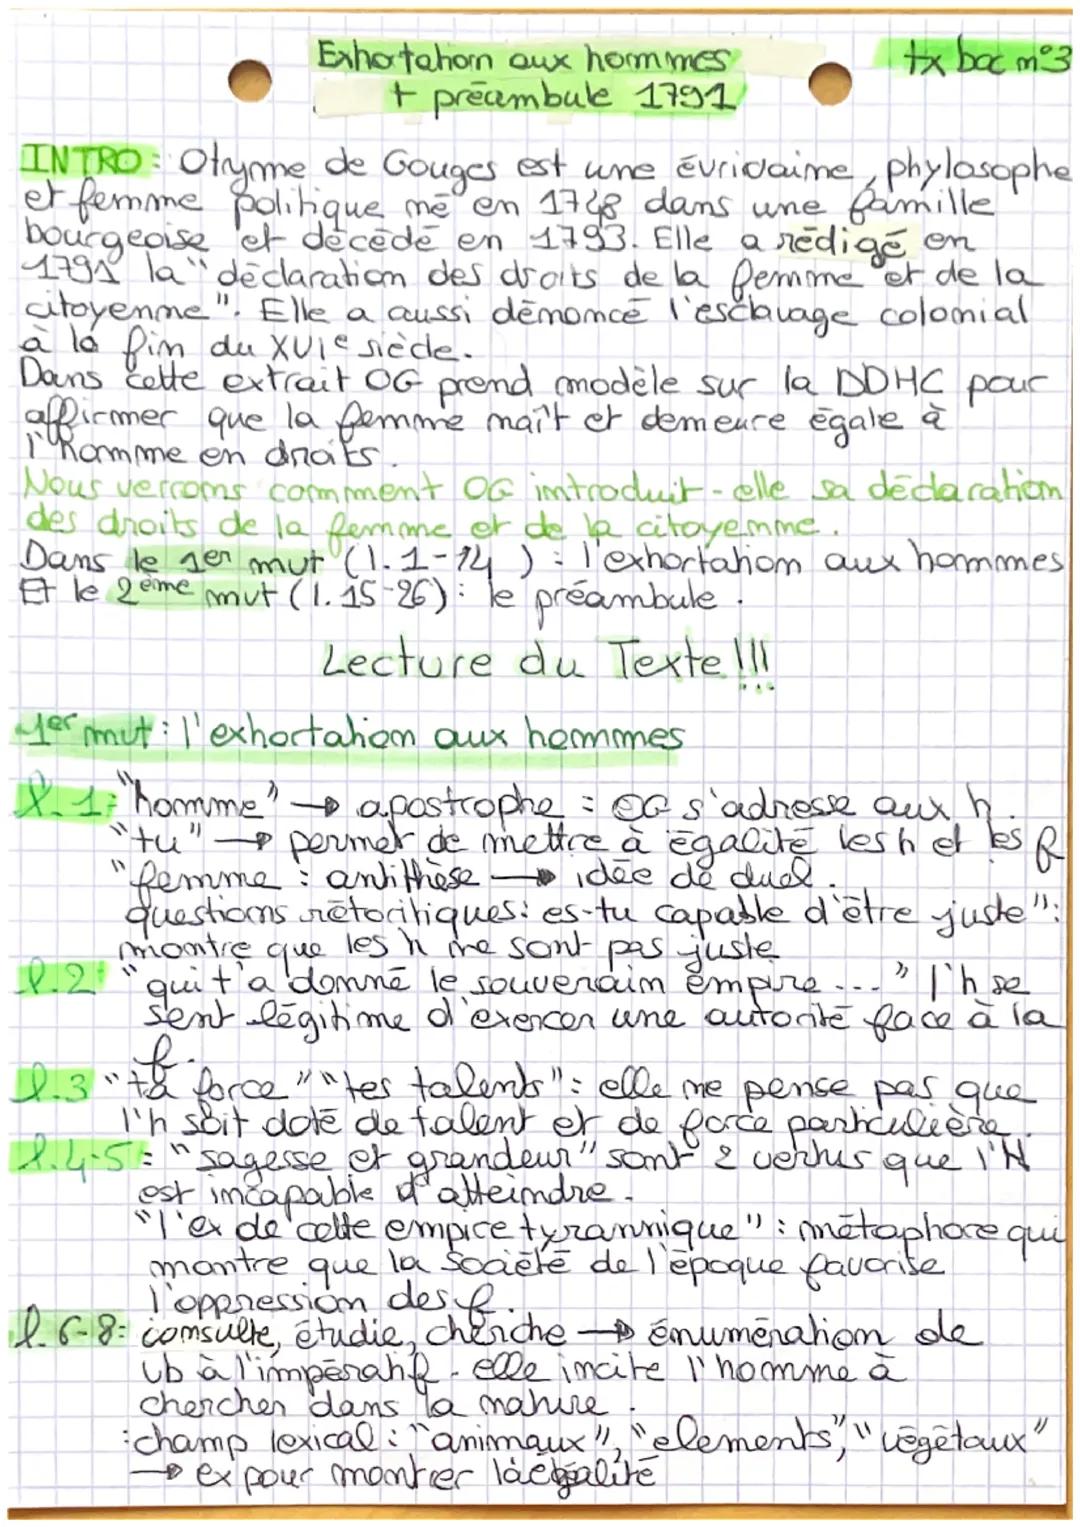 Exhortation aux hommes
+ préambule 1791
tx bac n°3
INTRO: Olyme de Gouges est une évrivaine, phylosophe
et femme politique né en 1748 dans une famille
bourgeoise et décédé en 1793. Elle a rédigé en
1791 la "déclaration des droits de la femme et de la
citoyenne". Elle a aussi dénoncé l'esclavage colonial
à la fin du XVIe siècle.
Dans cette extrait OG prend modèle sur la DDHC pour
affirmer que la femme naît et demeure égale à
l'homme en droits.
Nous verrons comment OG introduit-elle sa déclaration
des droits de la femme et de la citoyenne.
Dans le 1er mvt (l.1-14) : l'exhortation aux hommes
Et le 2ème mvt (l.15-26): le préambule.
Lecture du Texte!!!
1er mvt: l'exhortation aux hommes
l.1: "homme" → apostrophe : OG s'adresse aux h.
"tu" → permet de mettre à égalité les h et les f
"femme : antithèse → idée de duel.
questions rétoritiques: es-tu capable d'être juste":
montre que les h ne sont pas juste
l.2: "qui t'a donné le souverain empire..." l'h se
sent légitime d'exercer une autorité face à la
f.
l.3 "ta force" "tes talents": elle ne pense pas que
l'h soit doté de talent et de force particulière.
l.4-5: "sagesse et grandeur" sont 2 vertus que l'H
est incapable d'atteindre.
"l'ex de cette empire tyrannique": métaphore qui
montre que la société de l'époque favorise
l'oppression des f.
l.6-8: consulte, étudie, cherche → énumération de
vb à l'impératif. elle incite l'homme à
chercher dans la nature.
:champ lexical: "animaux", "elements", "végétaux"
→ ex pour montrer l'égalité